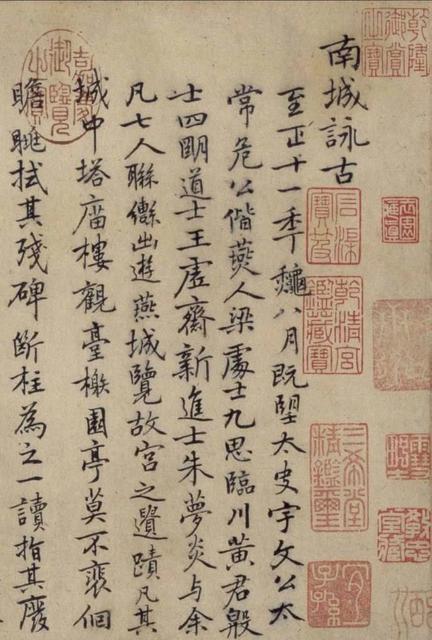 南城詠古
至正十一秊龝八月既望太史宇文公太
常危公偕燕人梁處士九思臨川黃君殷
士四朙道士王虛齋新進士朱夢炎与余
凡七人聯轡出遊燕城覽故宮之遺蹟凡其
城中塔廟樓觀臺榭園亭莫不裵佪
瞻眺拭其殘碑斷柱為之一讀指其廢
乾隆御賞之寶
石渠寶笈
乾清宮鑑藏寶
三希堂精鑑璽
宜子孫
嘉慶御覽之寶